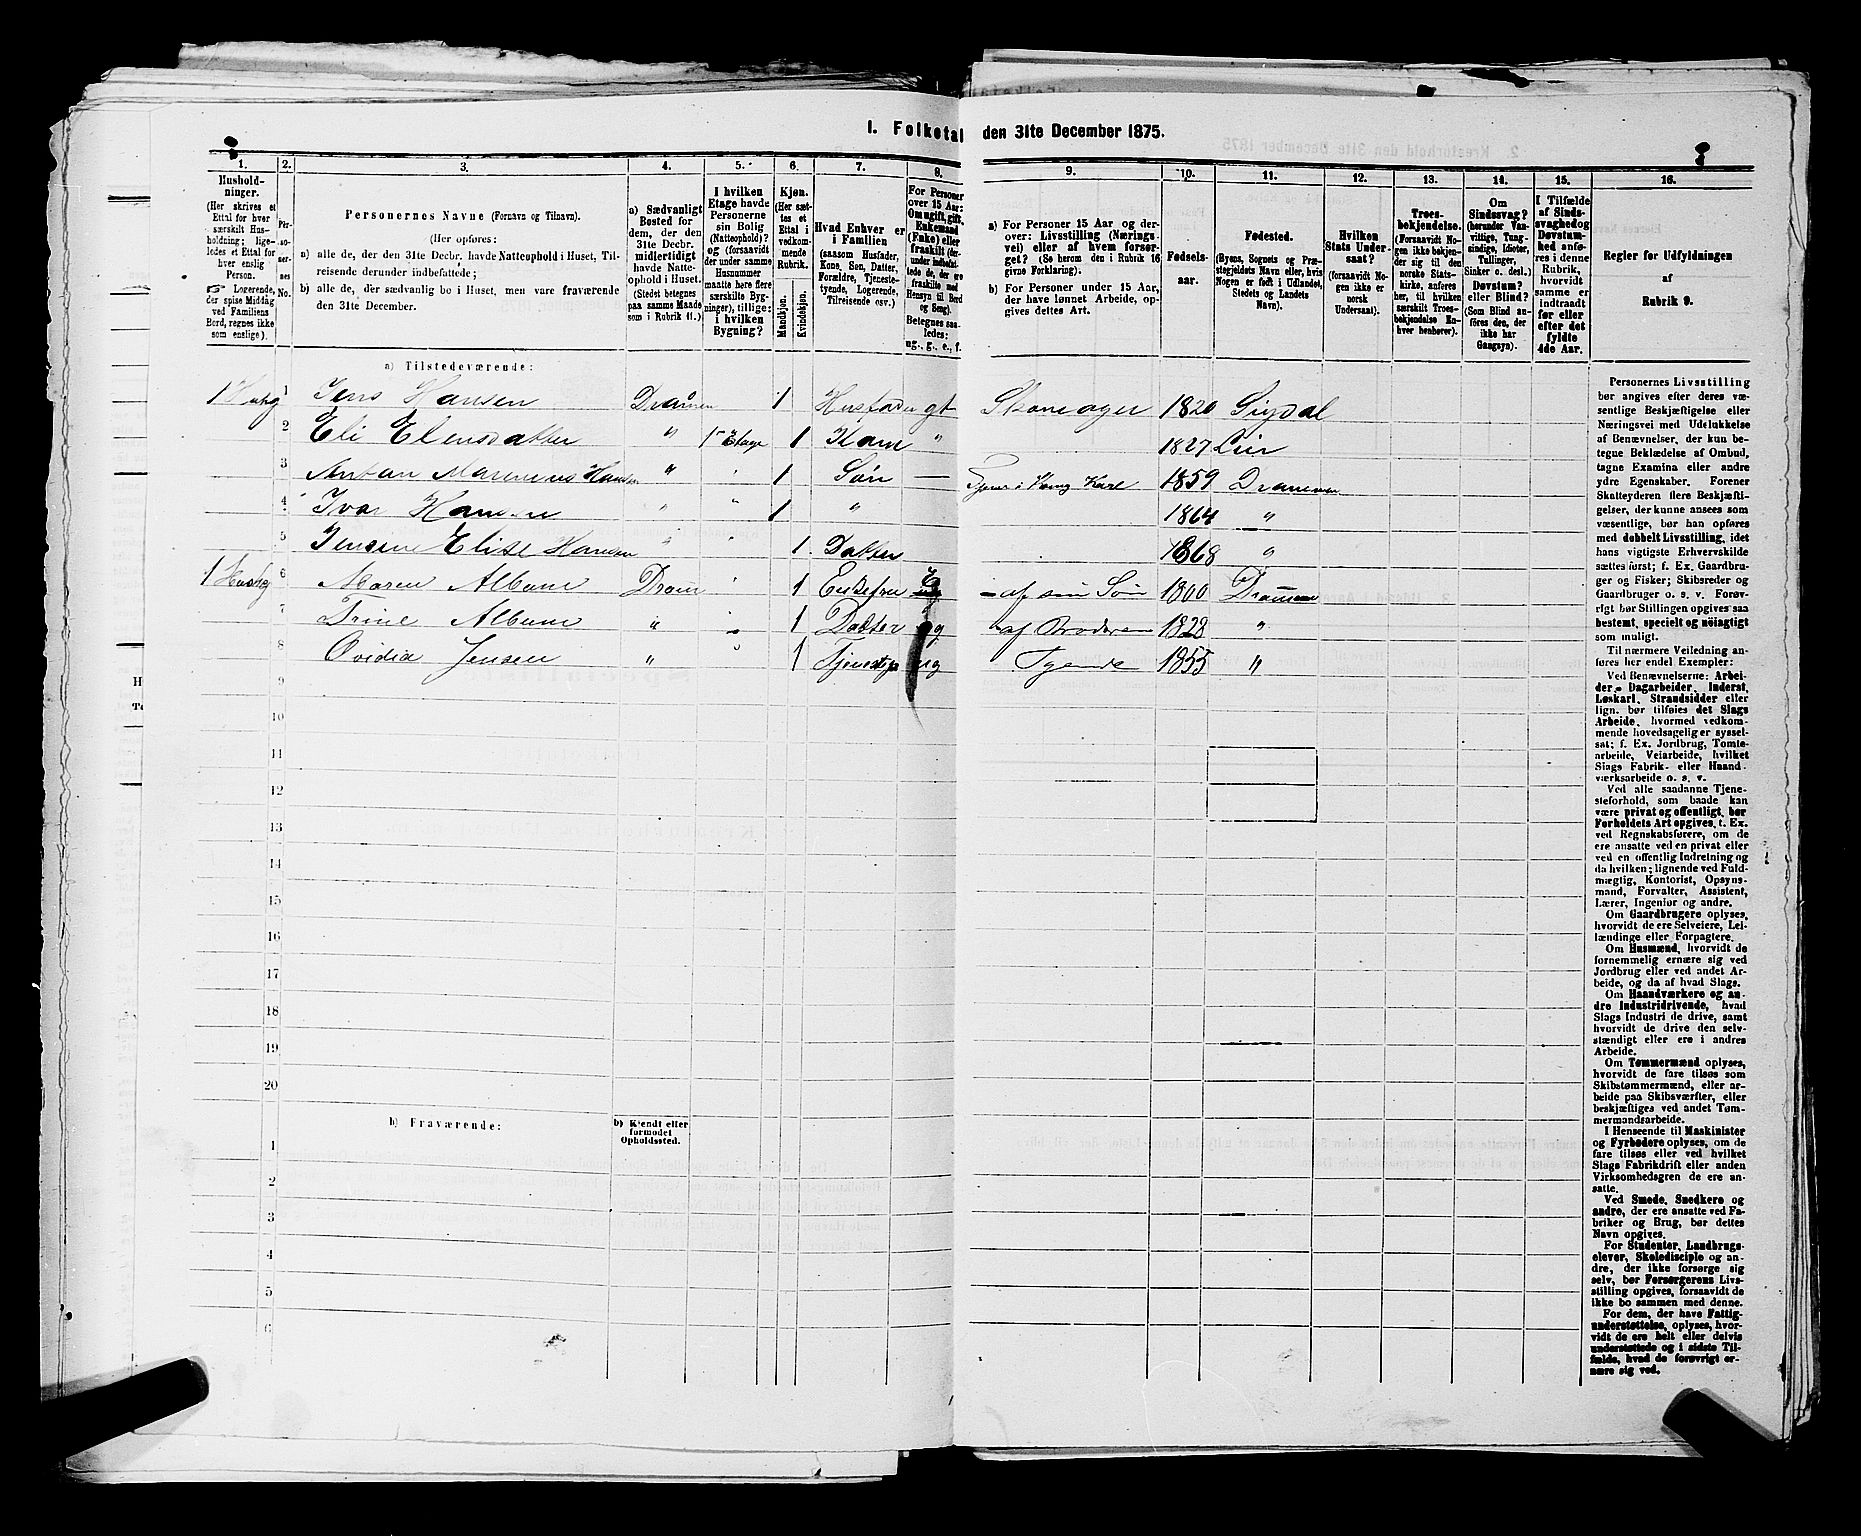 I. Folketal den 31te December 1875.
1. 2. 3. 4. 5. 6. 7. 8. 9. 10. 11. 12. 13. 14. 15. 16.
Hushold-
ninger.
(Her skrives et
Ettal for hver
særskilt Hus-
holdning; lige-
ledes et Ettal for
hver enslig
Person.
Logerende,
der spise Middag
ved Familiens
Bord, regnes ikke
som enslige).
Per-
so-
ner-
nes
No.
Personernes Navne (Fornavn og Tilnavn).
(Her opføres:
a) alle de, der den 31te Decbr. havde Natteophold i Huset, Til-
reisende derunder indbefattede;
b) alle de, der sædvanlig bo i Huset, men vare fraværende
den 31te December.
a) Sædvanligt
Bosted for
dem, der den
31te Decbr.
midlertidigt
havde Natte-
ophold i Huset.
(Stedet betegnes
paa samme Maade
som i Rubrik 11.)
I hvilken
Etage havde
Personerne
sin Bolig
(Natteophold)?
og (forsaavidt
der under samme
Husnummer
maatte høre flere
særskilte Byg-
ninger), tillige:
i hvilken
Bygning?
Kjøn.
(Her sæt-
tes et
Ettal i
vedkom-
mende
Rubrik.
Mandkjøn.
Kvindekjøn.
Hvad Enhver er
i Familien
(saasom Husfader,
Kone, Søn, Datter,
Forældre, Tjeneste-
tyende, Logerende,
Tilreisende osv.)
For Personer
over 15 Aar:
Om ugift, gift,
Enkemand
(Enke) eller
fraskilt
Betegnes saa-
ledes:
ug., g., e., f.
a) For Personer 15 Aar og der-
over: Livsstilling (Nærings-
vei) eller af hvem forsør-
get? (Se herom den i Rubrik 16
givne Forklaring).
b) For Personer under 15 Aar,
der have lønnet Arbeide, op-
gives dettes Art.
Fødsels-
aar.
Fødested.
(Byens, Sognets og Præ-
stegjeldets Navn eller, hvis
Nogen er født i Udlandet,
Stedets og Landets
Navn).
Hvilken
Stats Under-
saat?
(forsaavidt No-
gen ikke er
norsk
Undersaat).
Troes-
bekjendelse.
(Forsaavidt No-
gen ikke bekjen-
der sig til den
norske Stats-
kirke, anføres
her, til hvilken
særskilt Troes-
bekjendelse En-
hver henhører).
Om
Sindssvag?
(herunder Van-
vittige, Tung-
sindige, Idioter,
Tullinger,
Sinker o. desl.)
Døvstum?
eller Blind?
(Som Blind an-
føres den, der
ikke har
Gangsyn).
I Tilfælde
af Sinds-
svaghed og
Døvstum-
hed anfø-
res i denne
Rubrik,
hvorvidt
samme er
indtraadt
før eller
efter det
fyldte
4de Aar.
Regler for Udfyldningen
af
Rubrik 9.
a) Tilstedeværende:
1 1 Jens Hansen Dramen 1 Husfader gt 1820 Sigdal
2 Eli Elensdatter " Etage 1 Kone " 1827 Lier
3 Hansen " 1 Søn — 1859 Drammen
4 Ivar Hansen " " 1 " 1864 "
5 Elise Hansen " " 1 Datter 1868 "
1 6 Maren Album Dram 1 Enkefru E af sin Søn 1800 Drammen
7 Trine Album " " 1 Datter ug af Broderen 1828 "
8 Ovidia Jensen " " 1 ug Tyende 1855 "
9
10
11
12
13
14
15
16
17
18
19
20
b) Fraværende:
b) Kjendt eller
formodet
Opholdssted.
1
2
3
4
5
6
Personernes Livsstilling
bør angives efter deres væ-
sentlige Beskjæftigelse eller
Næringsvei med Udelukkelse
af Benævnelser, der kun be-
tegne Beklædelse af Ombud,
tagne Examina eller andre
ydre Egenskaber. Forener
Skatteyderen flere Beskjæfti-
gelser, der kunne ansees som
væsentlige, bør han opføres
med dobbelt Livsstilling, idet
hans vigtigste Erhvervskilde
sættes først; f. Ex. Gaardbru-
ger og Fisker; Skibsreder og
Gaardbruger o. s. v. Forøv-
rigt bør Stillingen opgives saa
bestemt, specielt og nöiagtigt
som muligt.
Til nærmere Veiledning an-
føres her endel Exempler:
Ved Benævnelserne: Arbei-
der, Dagarbeider, Inderst,
Løskarl, Strandsidder eller
lign. bør tilføies det Slags
Arbeide, hvormed vedkom-
mende hovedsagelig er syssel-
sat; f. Ex. Jordbrug, Tomte-
arbeide, Veiarbeide, hvilket
Slags Fabrik- eller Haand-
værksarbeide o. s. v.
Ved alle saadanne Tjene-
steforhold, som baade kan
være privat og offentligt, bør
Forholdets Art opgives, t. Ex.
ved Regnskabsførere, om de
ere ansatte ved en privat eller
ved en offentlig Indretning og
da hvilken; lignende ved Fuld-
mægtig, Kontorist, Opsyns-
mand, Forvalter, Assistent,
Lærer, Ingeniør og andre.
Om Gaardbrugere oplyses,
hvorvidt de ere Selveiere, Lei-
lændinge eller Forpagtere.
Om Husmænd, hvorvidt de
fornemmelig ernære sig ved
Jordbrug eller ved andet Ar-
beide, og da af hvad Slags.
Om Haandværkere og an-
dre Industridrivende, hvad
Slags Industri de drive, samt
hvorvidt de drive den selv-
stændigt eller ere i andres
Arbeide.
Om Tømmermænd oplyses,
hvorvidt de fare tilsøs som
Skibstømmermænd, eller ar-
beide paa Skibsværfter, eller
beskjæftiges ved andet Tøm-
mermandsarbeide.
I Henseende til Maskinister
og Fyrbødere oplyses, om de
fare tilsøs eller ved hvilket
Slags Fabrikdrift eller anden
Virksomhedsgren de ere an-
satte.
Ved Smede, Snedkere og
andre, der ere ansatte ved Fa-
briker og Brug, bør dettes
Navn opgives.
For Studenter, Landbrugs-
elever, Skoledisciple og an-
dre, der ikke forsørge sig
selv, bør Forsørgerens Livs-
stilling opgives, forsaavidt de
ikke bo sammen med denne.
For dem, der have Fattig-
understøttelse, oplyses, hvor-
vidt de ere helt eller delvis
understøttede og i sidste Til-
fælde, hvad de forøvrigt er-
nære sig ved.